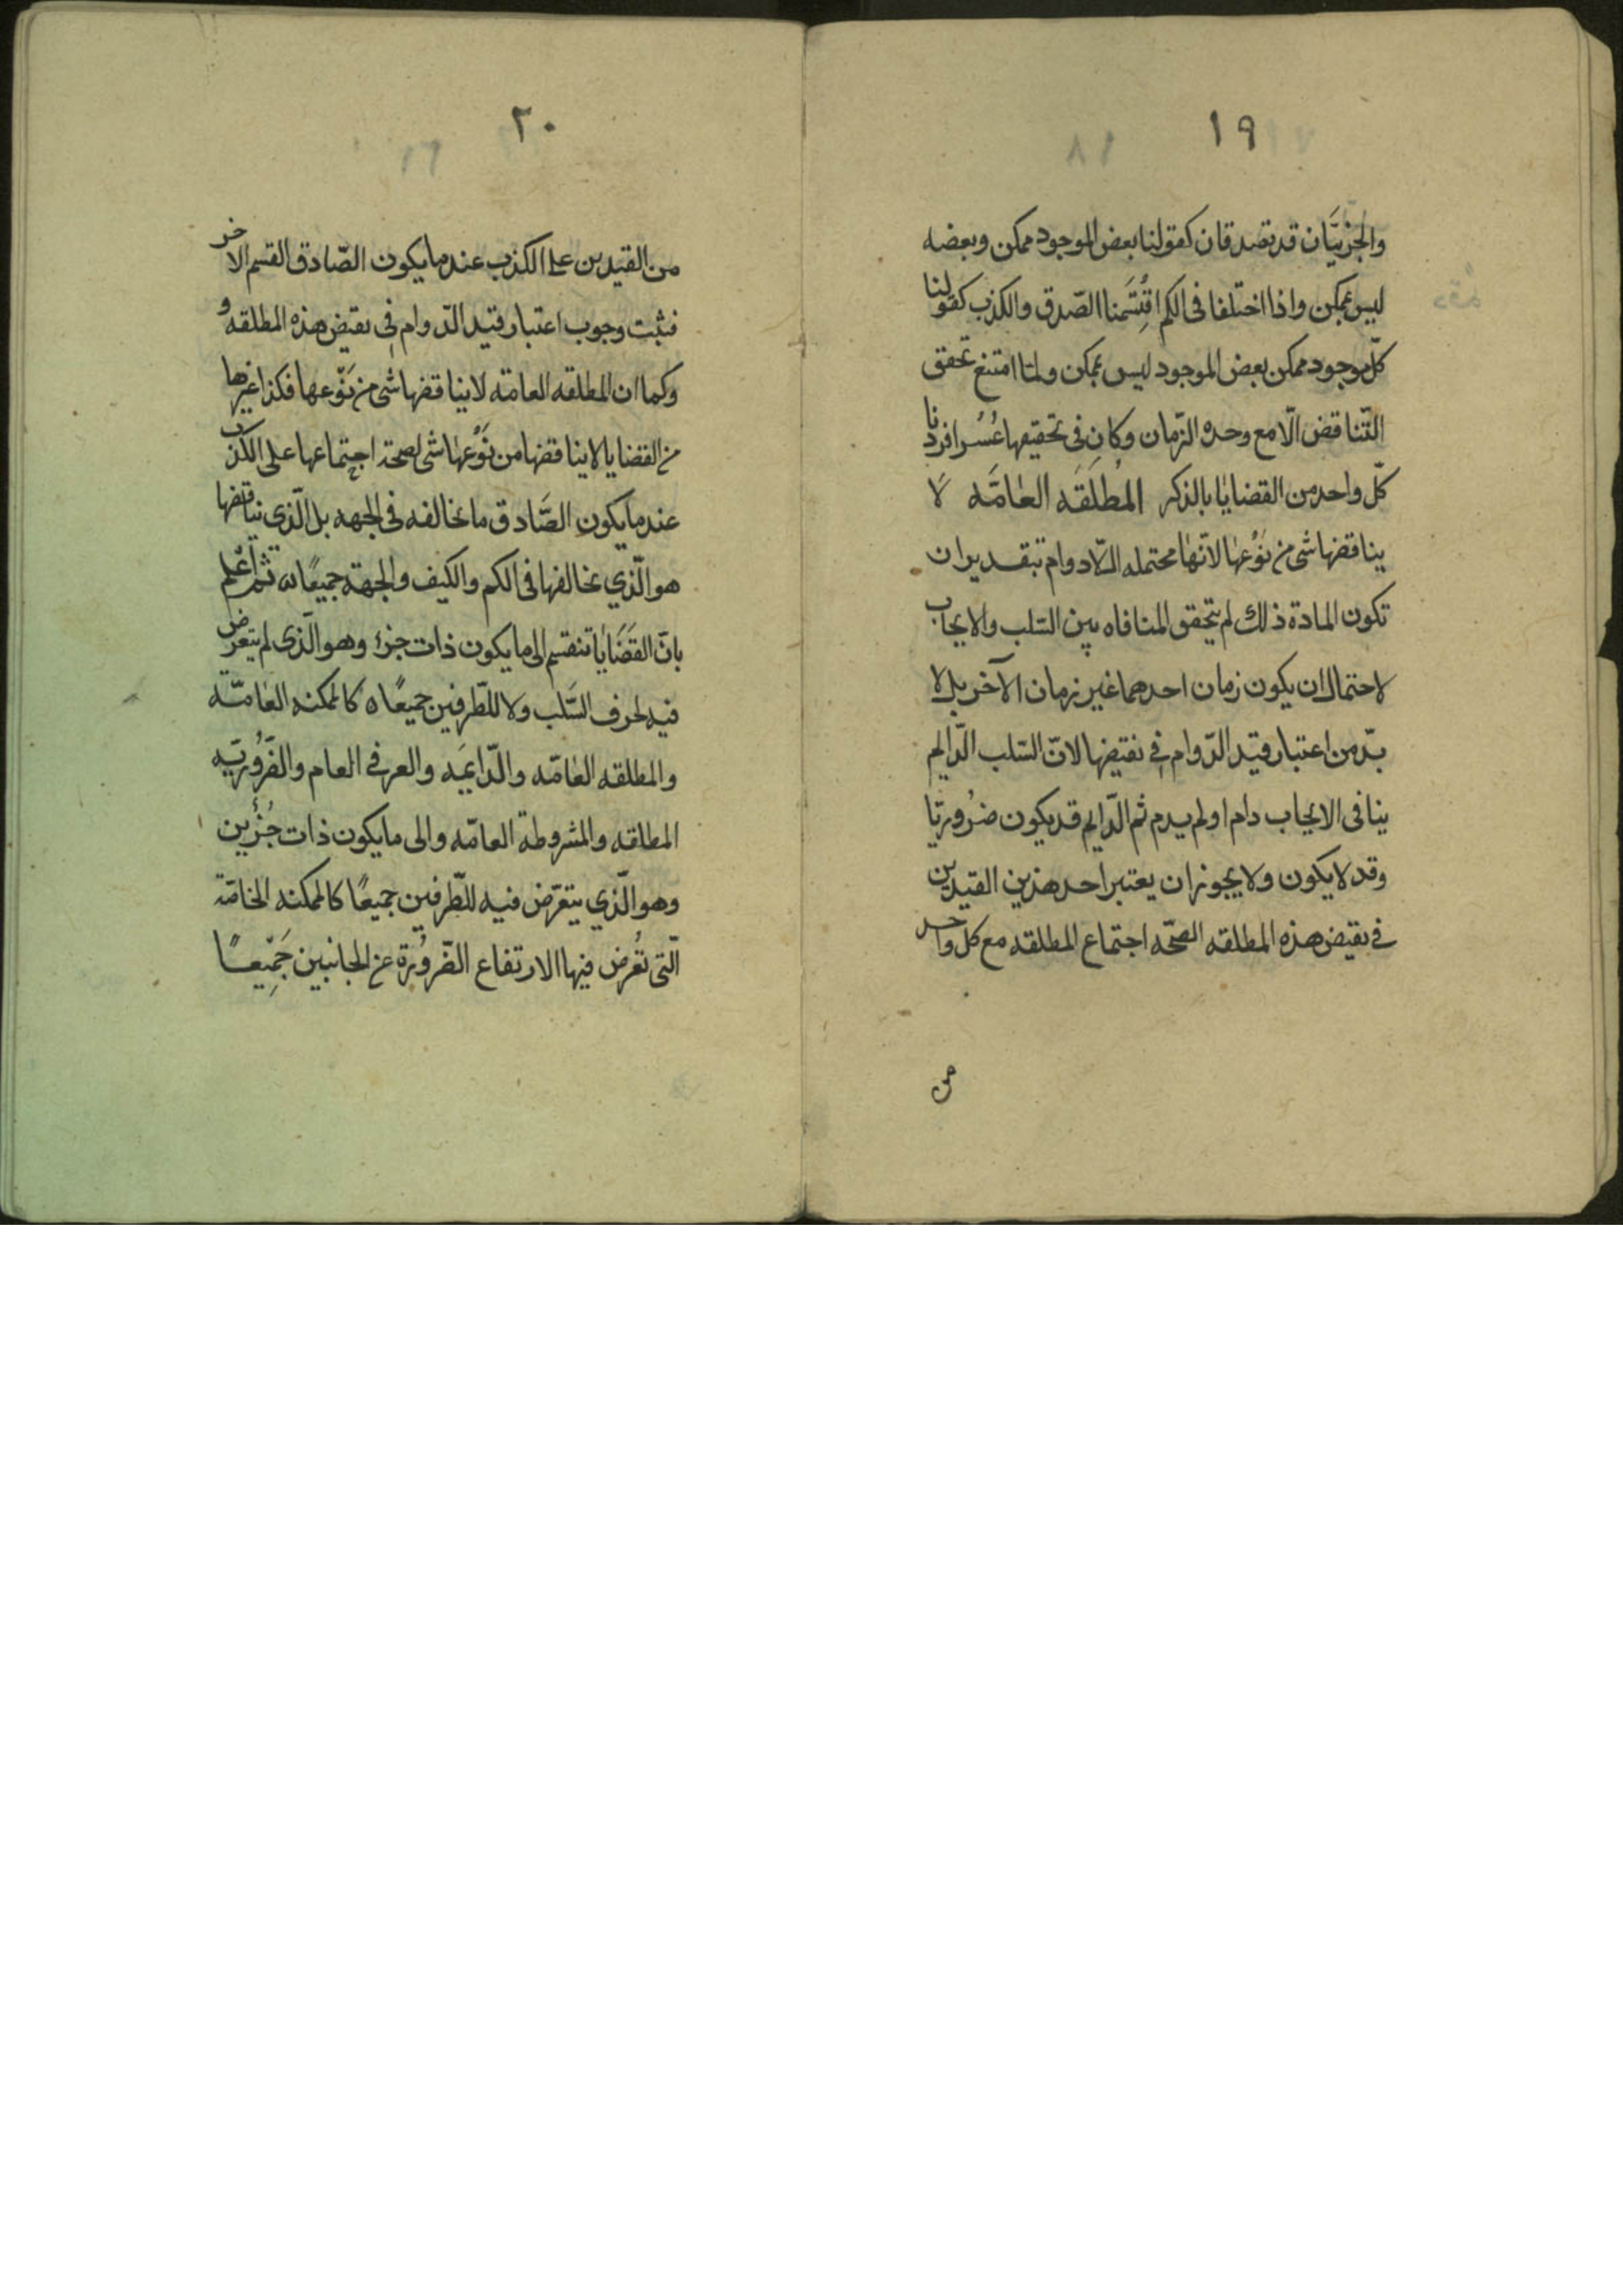 ١٩
والجزئيّان قد تصدقان كقولنا بعض الموجود ممكن وبعضه
ليس بممكن واذا اختلفا فى الكم اقتسمنا الصّدق والكذب كقولنا
كلّ موجود ممكن بعض الموجود ليس بممكن ولمّا امتنع تحقق
التّناقض الّا مع وحده الزّمان وكان فى تحقيقها عُسُر افردنا
كلّ واحد من القضايا بالذكر المُطلَقَه العامّه لا
يناقضها شى من نَوْعها لانّها محتمله اللّادوام تبقدير ان
تكون المادة ذلك لم يتحقق المنافاه بين السّلب والايجاب
لاحتمال ان يكون زمان احدهما غير زمان الآخر بل لا
بدّ من اعتبار قيد الدّوام فِى نقيضها لانّ السّلب الدّايم
ينافى الايجاب دام او لم يدم ثم الدّايم قد يكون ضرُوريّا
وقد لا يكون ولا يجوز ان يعتبر احد هذين القيدين
فى نقيض هذه المطلقه الصحّه اجتماع المطلقه مع كل واحد
من
٢٠
من القيدين على الكذب عند ما يكون الصّادق القسم الاخر
فثبت وجوب اعتبار قيد الدّوام فِى نقيض هذه المطلقه و
وكما ان المطلقه العامّه لا يناقضها شى من نَوْعها فكذا غيرها
من القضايا لا يناقضها من نَوْعها شى لصحة اجتماعها على الكذب
عند ما يكون الصَّادق ما يخالفه فى الجهه بل الّذى يناقضها
هو الّذي يخالفها فى الكم والكيف والجهة جميعًا ثم اعْلم
بانّ القَضَايا تنقسم الى ما يكون ذات جزء وهو الّذى لم يتعرض
فيه لحرف السَّلب ولا للطّرفين جميعًا ه كالممكنه العامّه
والمطلقه العامّه والدّايمَه والعرفى العام والضّرُوريّه
المطلقه والمشروطة العامّه والى ما يكون ذات جُزْئين
وهو الّذي يتعرّض فيه للطّرفين جميعًا كالممكنه الخاصّة
الّتى تُعُرض فيها الارتفاع الضّرُورة عن الجانبين جَمِيْعًا